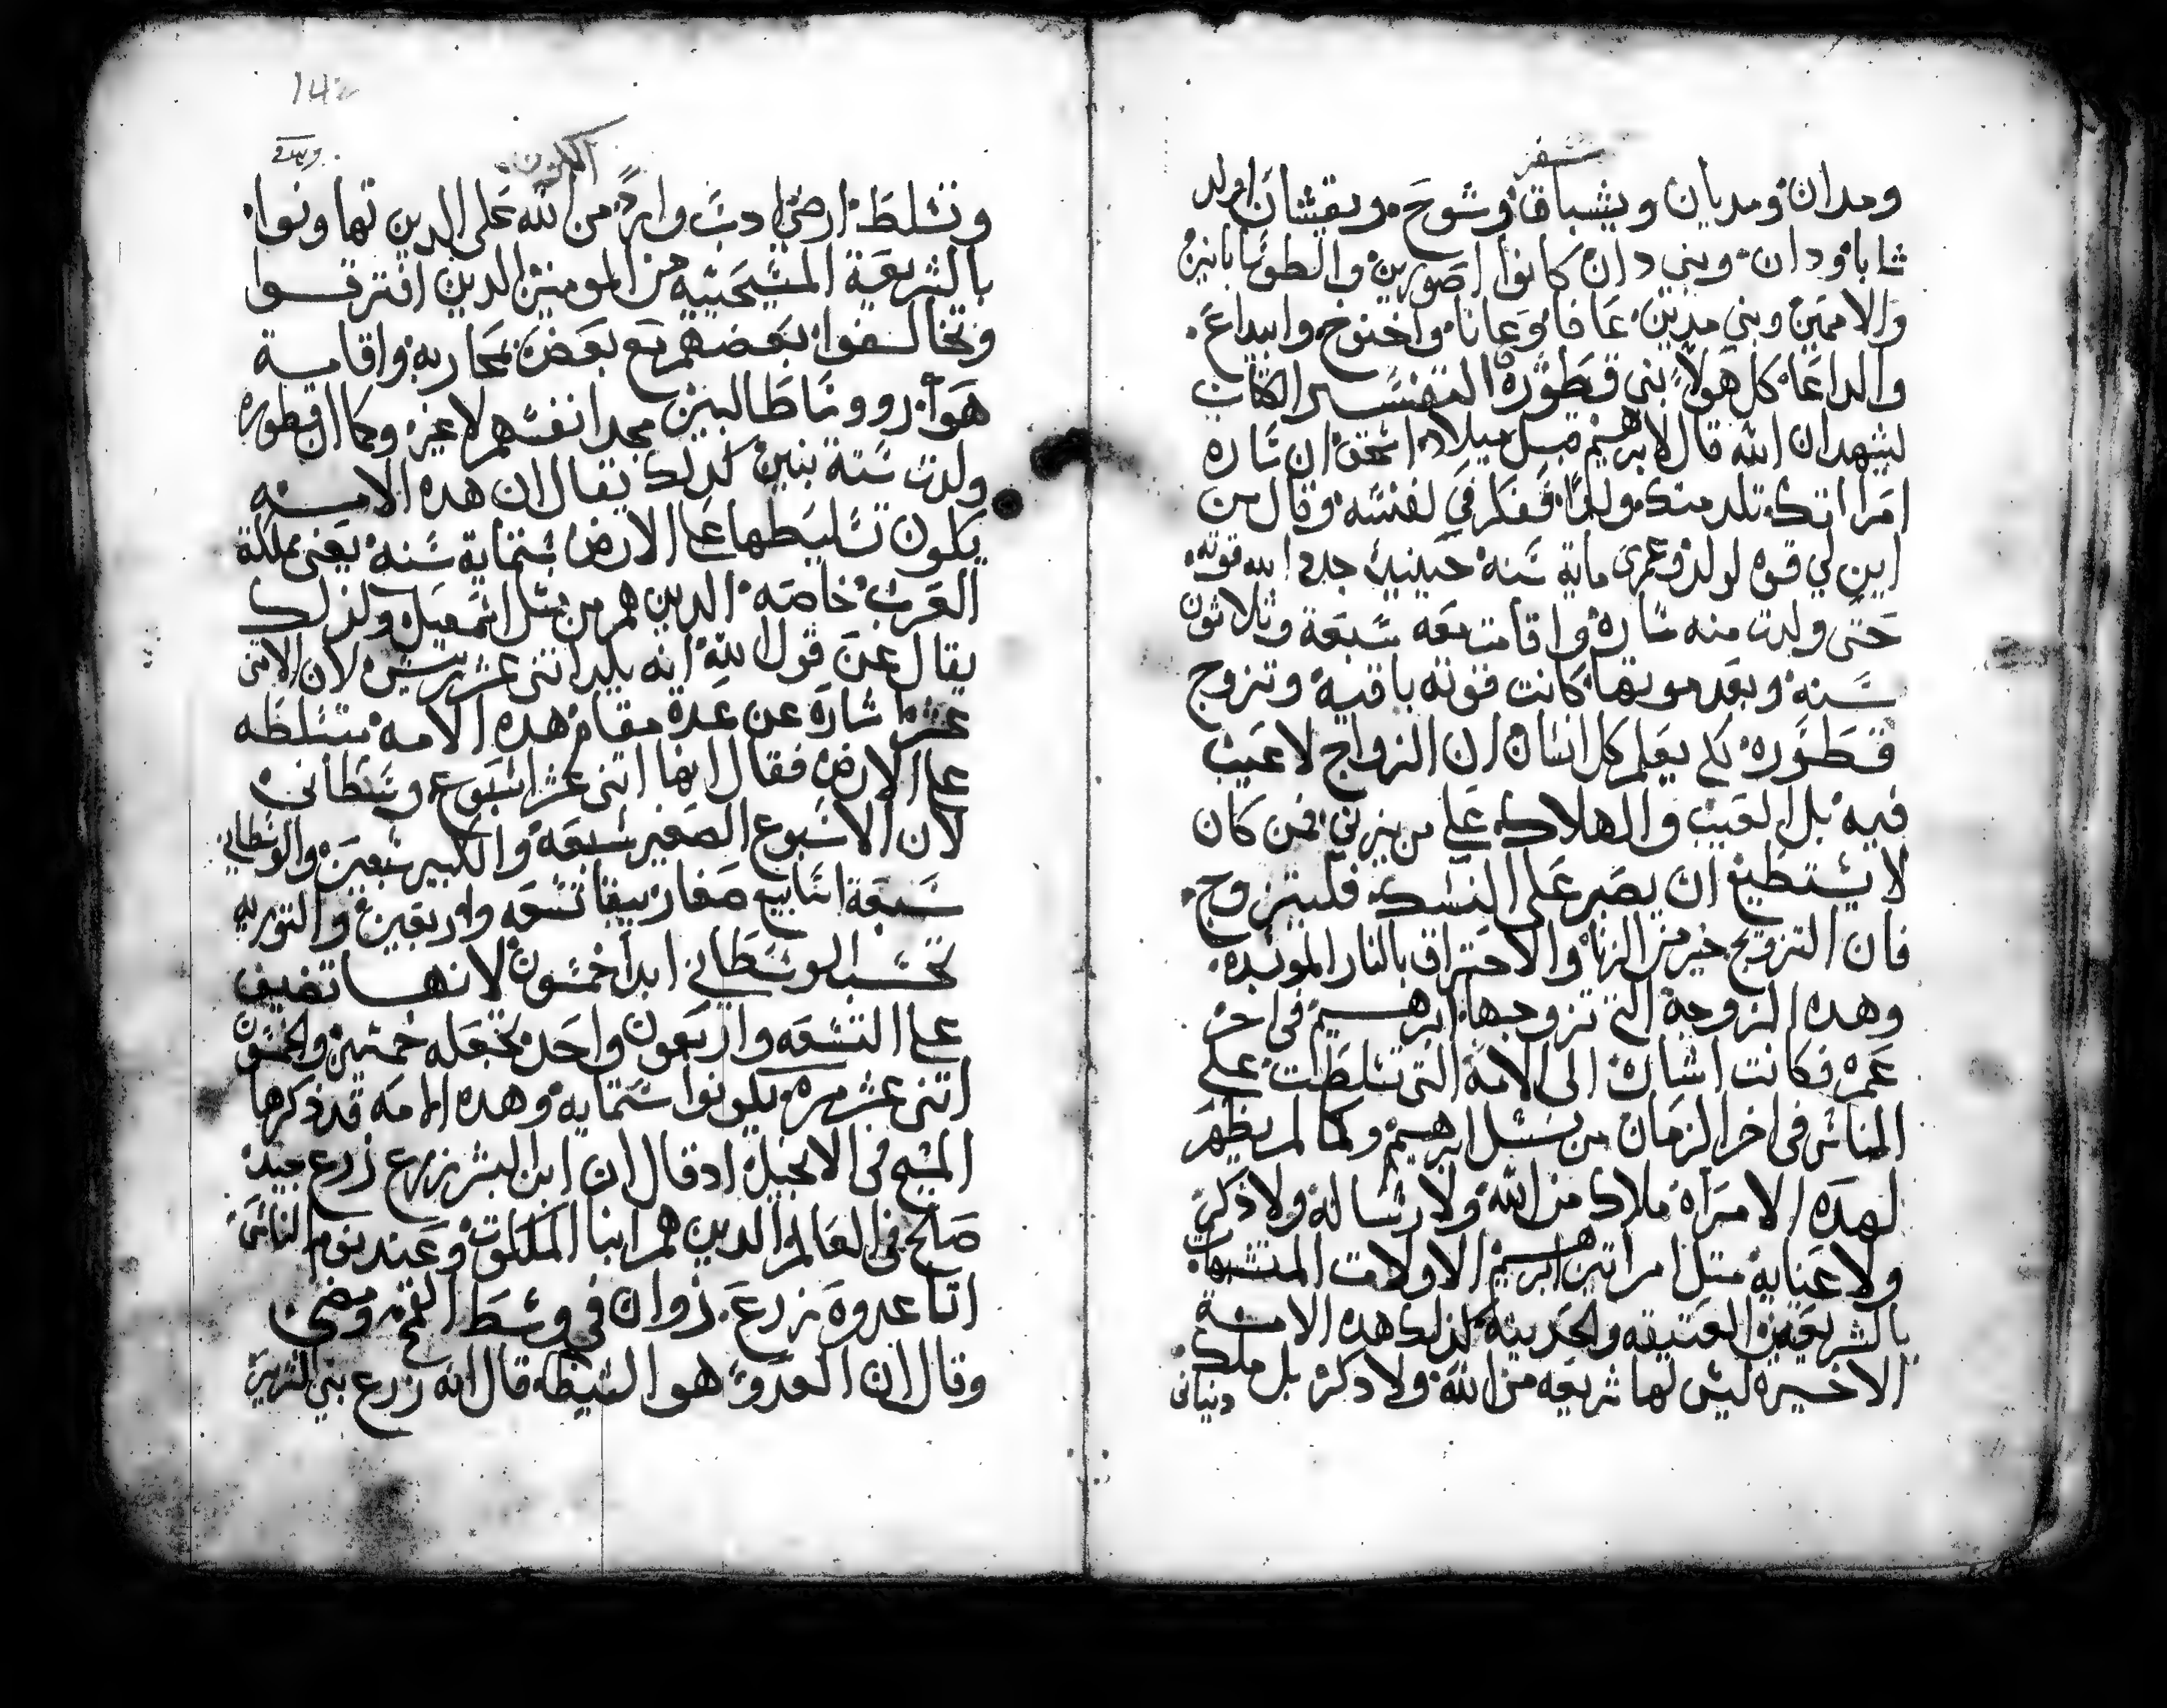 سفر
ومدان ومديان ويشباق وشوح ويقشان اولد
شابا ودان وبني دان كانوا اصورين والطوسابانين
والاممين وبني مدين عافا وعانا واخنوخ وابيداع
والداعا كل هولاء بني قطوره التفسير الكتاب
يشهد ان الله قال لابرهيم قبل ميلاد اسحق ان ساره
امراتك تلد منك ولدًا ففكر في نفسه وقال من
اين لي قوه لولد وعمري ماية سنه حينيد جدد الله قوته
حتى ولدت منه ساره واقامت معه سبعة وتلاتون
سنه وبعد موتها كانت قوته باقيه وتزوج
قطوره لكي يعلم كل انسان ان الزواج لا عيب
فيه بل العيب والهلاك علي من يزني فمن كان
لا يستطيع ان يصبر على النسك فليتزوج
فان التزويج خير من الزنا والاحتراق بالنار الموبده
وهده الزوجة التي تزوجها ابرهيم في اخر
عمره فكانت اشاره الى الامة التى تسلطت علي
الناس في اخر الزمان من نسل ابرهيم وكما لم يظهر
لهده الامراه ملاك من الله ولا رساله ولا ذكر
ولا عنايه متل امراتين ابرهيم الاولات المتشبهات
بالشريعتين العتيقه والحديته كذلك هده الامة
الاخيره ليس لها شريعه من الله ولا ذكر بل ملك دنياني
142
الكون
وتسلط ارضي ادبًا وارد من الله على الدين تهاونوا
بالشريعة المسيحيية من المومنين الدين افترقوا
وتخالفوا بعضهم مع بعض بمحاربه واقامة
هوا رووسا طالبين مجد انفسهم لا غير وكما ان قطوره
ولدت ستة بنين كدلك يقال ان هده الامة
يكون تسليطها على الارض ستماية سنه يعني مملكة
العرب خاصة الدين هم من نسل اسمعيل ولذلك
يقال عن قول الله انه يلد اتني عشر ريس لان الاتني
عشر اشارة عن عدة مقام هده الامه متسلطه
على الارض فقال انها اتني عشر اسبوع وسطاني
لان الاسبوع الصغير سبعه والكبير سبعين والوسطاني
سبعة اسابيع صغار يبقا تسعه واربعين والتوريه
تحسب الوسطاني ابدا خمسون لانها تضيف
على التسعه واربعون واحد تجعله خمسين والخمسون
اتني عشر مره يكونوا ستمايه وهده الامه قد ذكرها
المسيح في الانجيل اد قال ان ابن البشر يزرع زرع جيد
صلح في العالم الدين هم ابنا الملكوت وعند نوم الناس
اتا عدوه زرع زوان في وسط القمح ومضى
وقال ان العدو هو الشيطه قال انه زرع بني الشرير